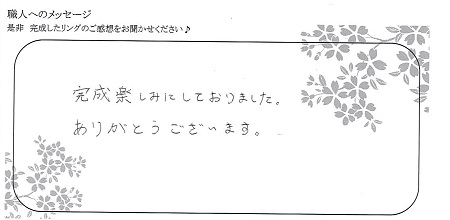 職人へのメッセージ
是非 完成したリングのご感想をお聞かせください♪
完成楽しみにしておりました。
ありがとうございます。